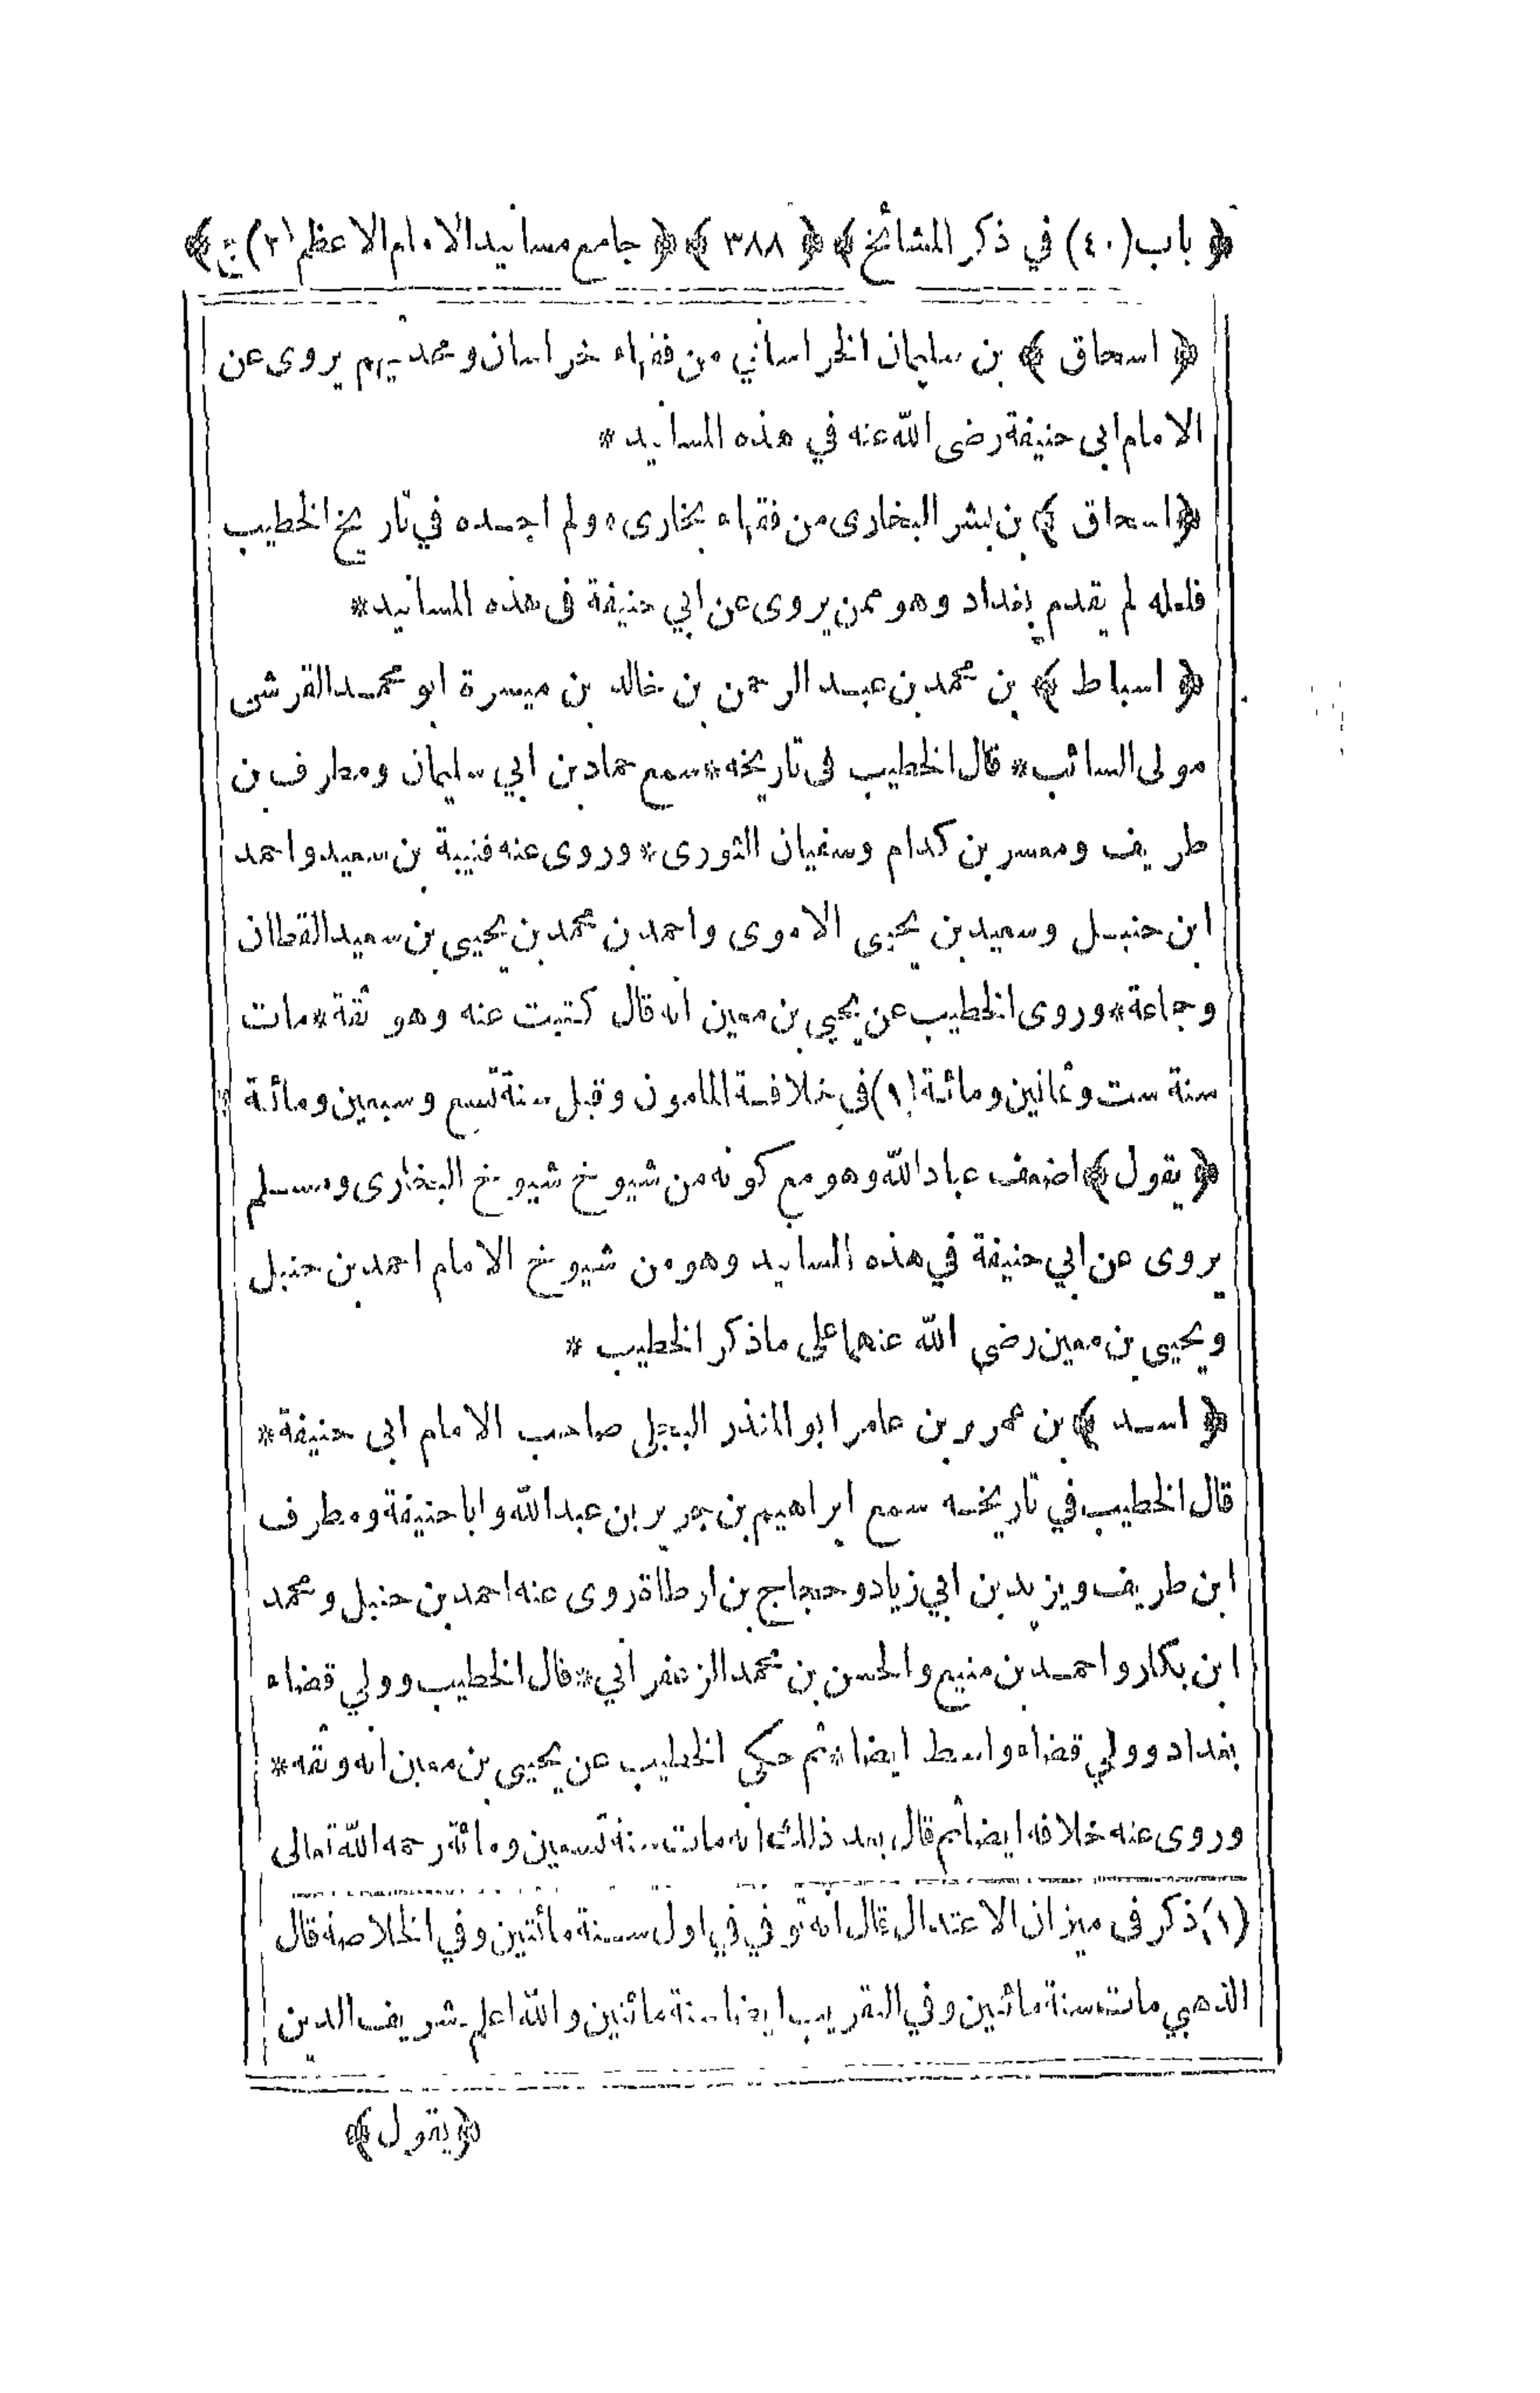 ﴿ باب (٤٠) في ذكر المشائخ ﴾ ﴿ ٣٨٨ ﴾ ﴿ جامع مسانيد الامام الاعظم (٢) ج ﴾
﴿ اسحاق ﴾ بن سليمان الخراساني من فقهاء خراسان ومحدثيهم يروى عن
الامام ابى حنيفة رضى الله عنه في هذه المسانيد *
﴿ اسحاق ﴾ بن بشر البخارى من فقهاء بخارى ه ولم اجده في تاريخ الخطيب
فلعله لم يقدم بغداد وهو ممن يروى عن ابي حنيفة فى هذه المسانيد *
﴿ اسباط ﴾ بن محمد بن عبد الرحمن بن خالد بن ميسرة ابو محمد القرشى
مولى السائب * قال الخطيب فى تاريخه * سمع حماد بن ابي سليمان ومطرف بن
طريف ومسعر بن كدام وسفيان الثورى * وروى عنه قتيبة بن سعيد واحمد
ابن حنبل وسعيد بن يحيى الاموى واحمد بن محمد بن يحيى بن سعيد القطان
وجماعة * وروى الخطيب عن يحيى بن معين انه قال كتبت عنه وهو ثقة * مات
سنة ست وثمانين ومائة (١) في خلافة المامون وقبل سنة تسع وسبعين ومائة *
﴿ يقول ﴾ اضعف عباد الله وهو مع كونه من شيوخ شيوخ البخارى ومسلم
يروى عن ابي حنيفة في هذه المسانيد وهو من شيوخ الامام احمد بن حنبل
ويحيى بن معين رضي الله عنهما على ما ذكر الخطيب *
﴿ اسد ﴾ بن عمرو بن عامر ابو المنذر البجلي صاحب الامام ابى حنيفة *
قال الخطيب في تاريخه سمع ابراهيم بن جرير بن عبد الله وابا حنيفة ومطرف
ابن طريف ويزيد بن ابي زياد وحجاج بن ارطاة روى عنه احمد بن حنبل ومحمد
ابن بكار واحمد بن منيع والحسن بن محمد الزعفراني * قال الخطيب وولي قضاء
بغداد وولي قضاء واسط ايضا * ثم حكي الخطيب عن يحيى بن معين انه وثقه *
وروى عنه خلافه ايضا ثم قال بعد ذلك انه مات سنة تسعين ومائة رحمه الله تعالى
(١) ذكر فى ميزان الاعتدال قال انه توفي في اول سنة مائتين وفي الخلاصة قال
الذهبي مات سنة مائتين وفي التقريب ايضا سنة مائتين والله اعلم شريف الدين
﴿ يقول ﴾